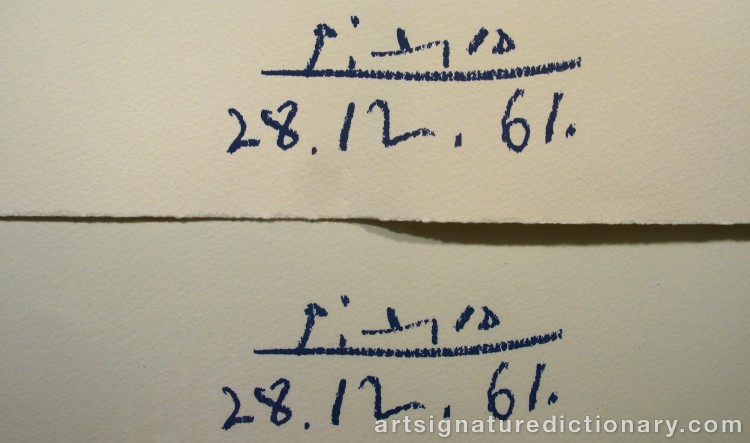 Picasso
28.12.61.
Picasso
28.12.61.
artsignaturedictionary.com